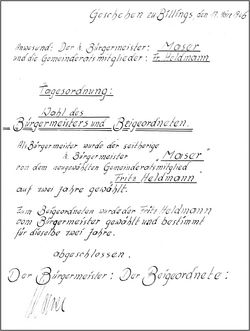 Geschehen zu Billings den 17. März 1946
Anwesend: Der k. Bürgermeister: Maser
und die Gemeinderatsmitglieder: Fr. Heldmann
Tagesordnung:
Wahl des
Bürgermeisters und Beigeordneten.
Als Bürgermeister wurde der seitherige
k. Bürgermeister "Maser"
von dem neugewählten Gemeinderatsmitglied
"Fritz Heldmann"
auf zwei Jahre gewählt.
Zum Beigeordneten wurde der Fritz Heldmann
vom Bürgermeister gewählt und bestimmt
für dieselbe zwei Jahre.
abgeschlossen.
Der Bürgermeister: Der Beigeordnete: